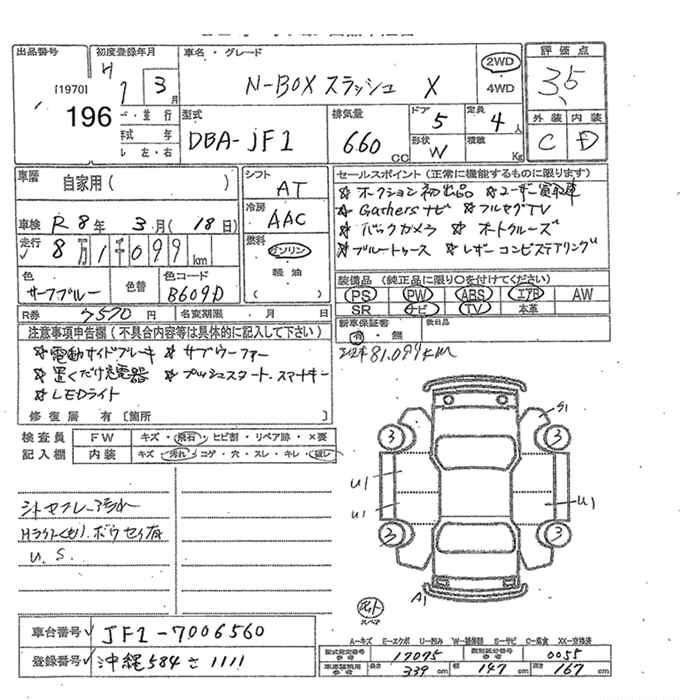 出品番号 初度登録年月 車名・グレード 評価点
[1970] H 3月 N-BOX スラッシュ X 2WD 4WD 3.5
196 型式 排気量 ドア 定員 外装 内装
DBA-JF1 660 cc 5 4人 C D
年式 年 左・右 形状 W 積載 Kg
車歴 自家用( ) シフト AT セールスポイント(正常に機能するものに限ります)
☆オークション初出品 ☆ユーザー買取車
冷房 AAC ☆Gathersナビ ☆フルセグTV
車検 R8年 3月(18日) ☆バックカメラ ☆オートクルーズ
走行 8万1千099km 燃料 ガソリン 軽油 ( ) ☆ブルートゥース ☆レザーコンビステアリング
色 色替 色コード 装備品(純正品に限り○を付けてください)
サーフブルー B609D PS PW ABS エアB AW
SR ナビ TV 本革
R券 7570円 名変期限 月 日 新車保証書 有・無 取説品
注意事項申告欄(不具合内容等は具体的に記入して下さい) 81.099km
☆電動サイドブレーキ ☆サブウーファー
☆置くだけ充電器 ☆プッシュスタート.スマートキー
☆LEDライト
修復歴 有〔箇所 〕
検査員 FW キズ・飛石・ヒビ割・リペア跡・×要
記入欄 内装 キズ・汚れ・コゲ・穴・スレ・キレ・破レ
S1
3 3
U1
U1 U1
3 3
A1
シートセフレーム汚れ
Hライトくもり.ボウセイ有
U.S.
スペア
車台番号 JF1-7006560
登録番号 沖縄584さ1111
A-キズ E-エクボ U-凹み W-補修跡 S-サビ C-腐食 XX-交換済
型式指定番号 参考 17075 類別区分番号 参考 0055
車両諸元 参考 長さ 339cm 幅 147cm 高さ 167cm